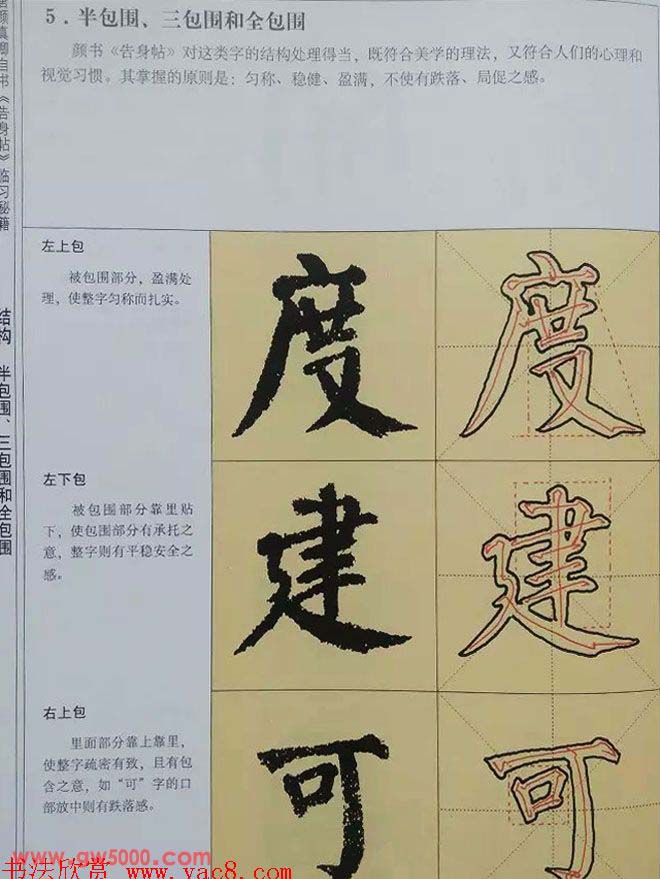 5．半包围、三包围和全包围
颜书《告身帖》对这类字的结构处理得当，既符合美学的理法，又符合人们的心理和
视觉习惯。其掌握的原则是：匀称、稳健、盈满，不使有跌落、局促之感。
颜真卿自书《告身帖》临习秘籍
结构 半包围、三包围和全包围
左上包
被包围部分，盈满处
理，使整字匀称而扎实。
度
度
左下包
被包围部分靠里贴
下，使包围部分有承托之
意，整字则有平稳安全之
感。
建
建
右上包
里面部分靠上靠里，
使整字疏密有致，且有包
含之意，如“可”字的口
部放中则有跌落感。
可
可
www.gw5000.com
书法欣赏 www.yac8.com